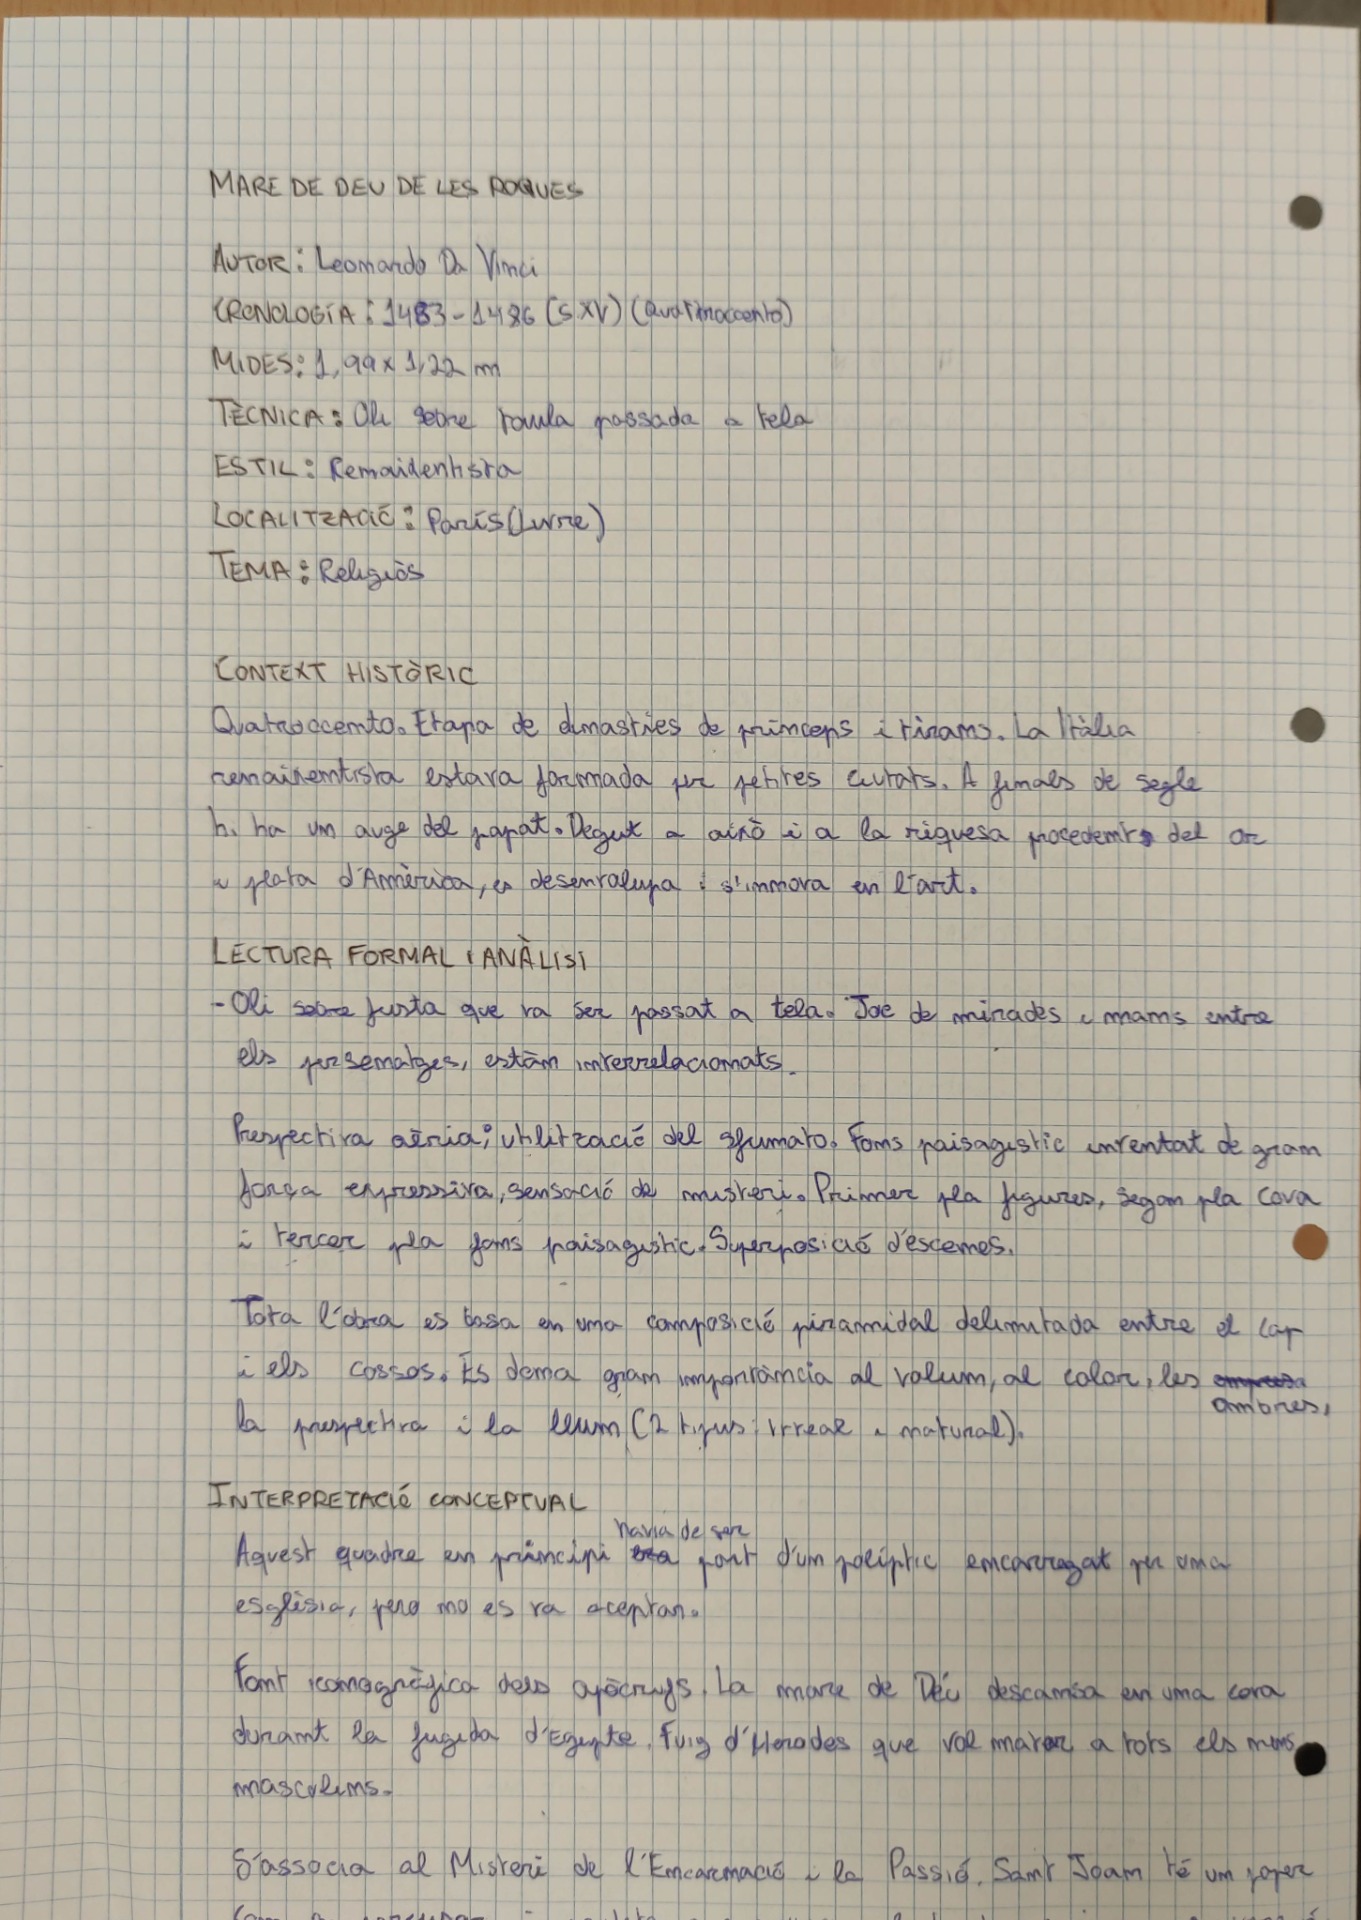 MARE DE DEU DE LES ROQUES
AUTOR: Leonardo Da Vinci
CRONOLOGÍA: 1483-1486 (S.XV) (Quattroccento)
MIDES: 1,99x 1,22 m
TÈCNICA: Oli sobre taula passada a tela
ESTIL: Renaixentista
LOCALITZACIÓ: París (Luvre)
TEMA: Religiòs
CONTEXT HISTÒRIC
Quatroccento. Etapa de dinastries de prínceps i tirans. La Itàlia
renaixentista estava formada per petites ciutats. A finals de segle
hi ha un auge del papat. Degut a això i a la riquesa procedent del or
i plata d'Amèrica, es desenvalupa i s'innova en l'art.
LECTURA FORMAL I ANÀLISI
- Oli sobre fusta que va ser passat a tela. Joc de mirades i mans entre
els personatges, estàn interrelacionats.
Prespectiva aèria; utilització del sfumato. Fons paisagistic inventat de gran
força expressiva, sensació de misteri. Primer pla figures, segon pla cova
i tercer pla fons paisagistic. Superposició d'escenes.
Tota l'obra es basa en una composició piramidal delimitada entre el cap
i els cossos. Es dona gran importància al volum, al color, les
ombres,
la prespectiva i la llum (2 tipus: irreal i natural).
INTERPRETACIÓ CONCEPTUAL
havia de ser
Aquest quadre en principi part d'un políptic encarregat per una
església, pero no es va aceptar.
Font iconogràfica dels apòcrifs. La mare de Déu descansa en una cova
durant la fugida d'Egipte. Fuig d'Herodes que vol matar a tots els nens
masculins.
S'associa al Misteri de l'Encarnació i la Passió. Sant Joan té un paper